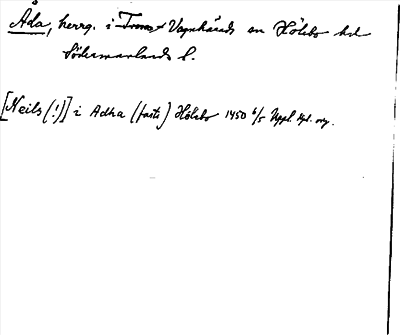 Åda, herrg. i Trosa-Vagnhärads sn Hölebo hd
Södermanlands l.
[Neils (!)] i Adha (faste) Hölebo 1450 6/5 Uppl. kpl. org.